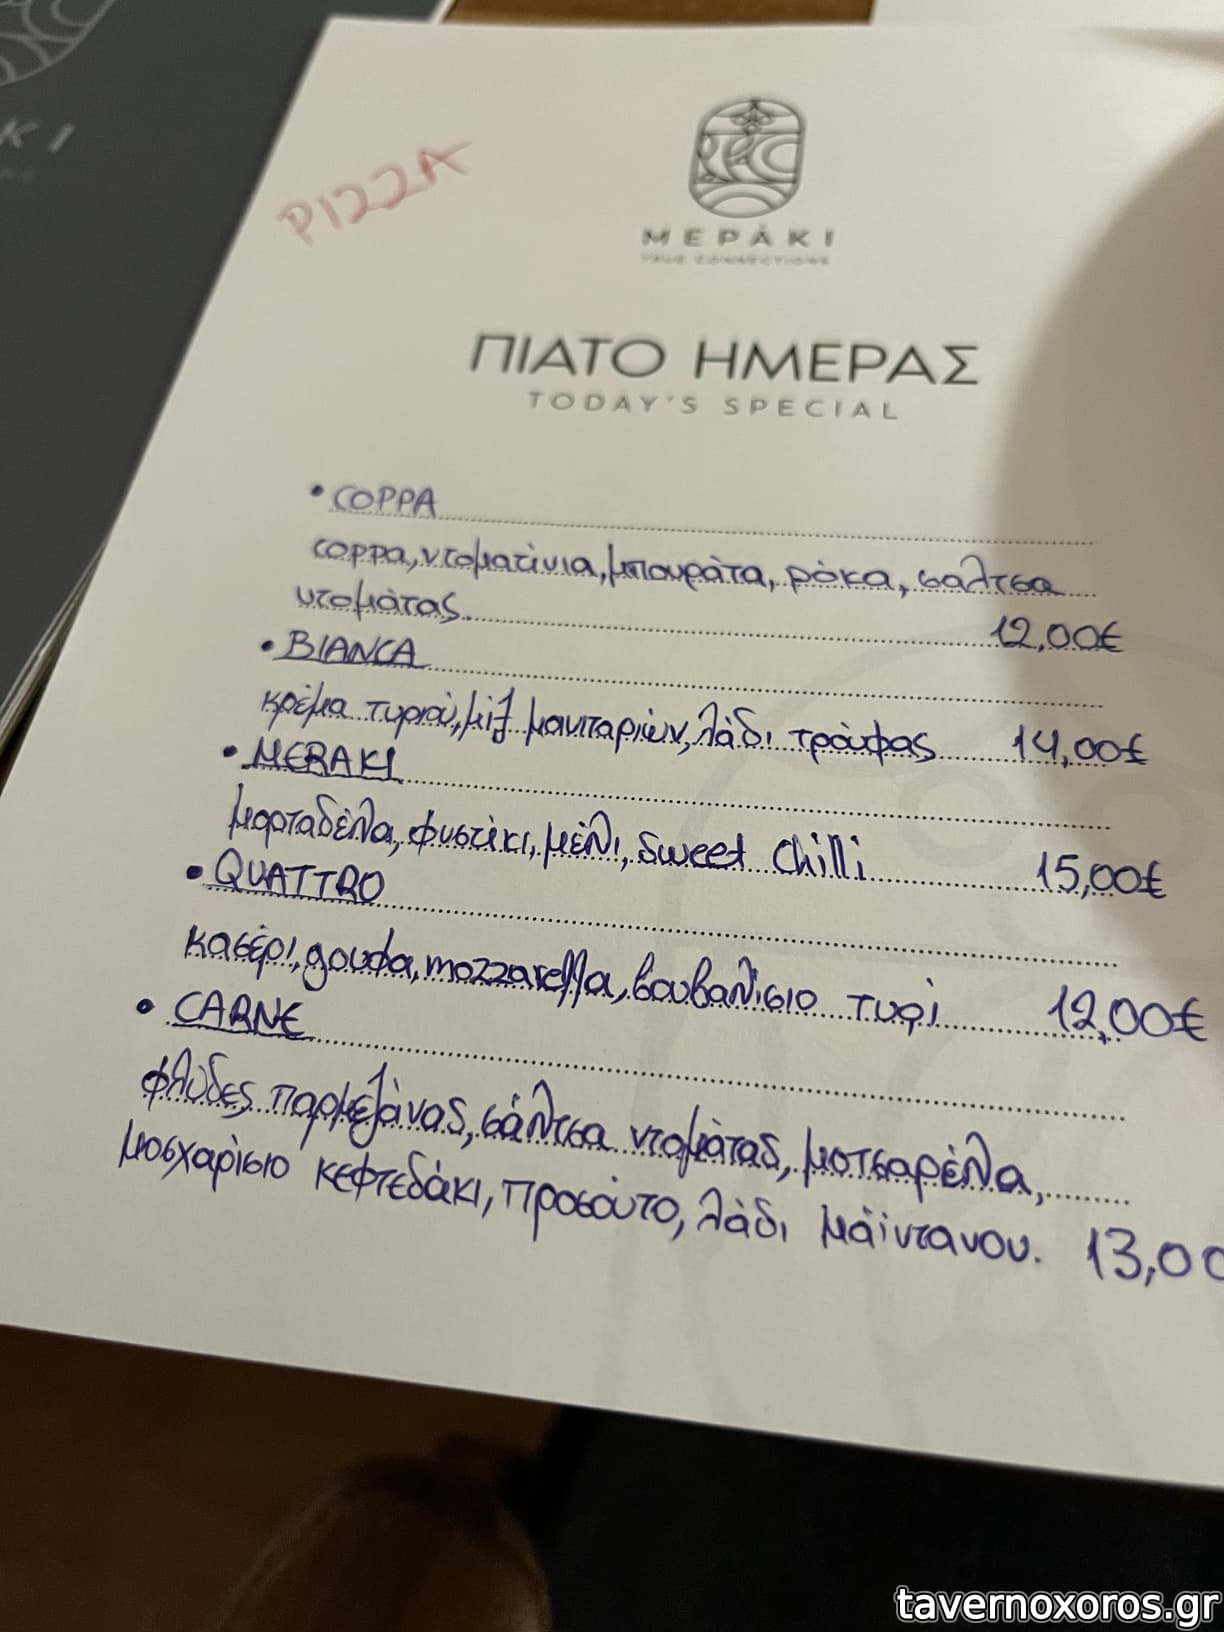 ΚΙ
PIZZA
ΜΕΡΆΚΙ
TRUE CONNECTIONS
ΠΙΑΤΟ ΗΜΕΡΑΣ
TODAY'S SPECIAL
• COPPA
coppa, ντοματίνια, μπουράτα, ρόκα, σαλτσα
ντομάτας 12,00€
• BIANCA
κρέμα τυριού, μιξ μανιταριών, λάδι τρούφας 14,00€
• MERAKI
μορταδέλα, φυστίκι, μέλι, sweet chilli 15,00€
• QUATTRO
κασέρι, gouda, mozzarella, βουβαλίσιο τυρί 12,00€
• CARNE
φλύδες παρμεζάνας, σάλτσα ντομάτας, μοτσαρέλα,
μοσχαρίσιο κεφτεδάκι, προσούτο, λάδι μάϊντανου. 13,00
tavernoxoros.gr